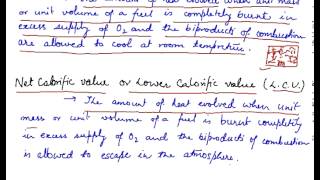 or unit volume of a fuel is completely burnt in
excess supply of O2 and the biproducts of combustion
are allowed to cool at room tempreture.
Net Calorific value or Lower Calorific value (L.C.V.)
→ The amount of heat evolved when unit
mass or unit volume of a fuel is burnt completely
in excess supply of O2 and the biproducts of combustion
is allowed to escape in the atmosphere.